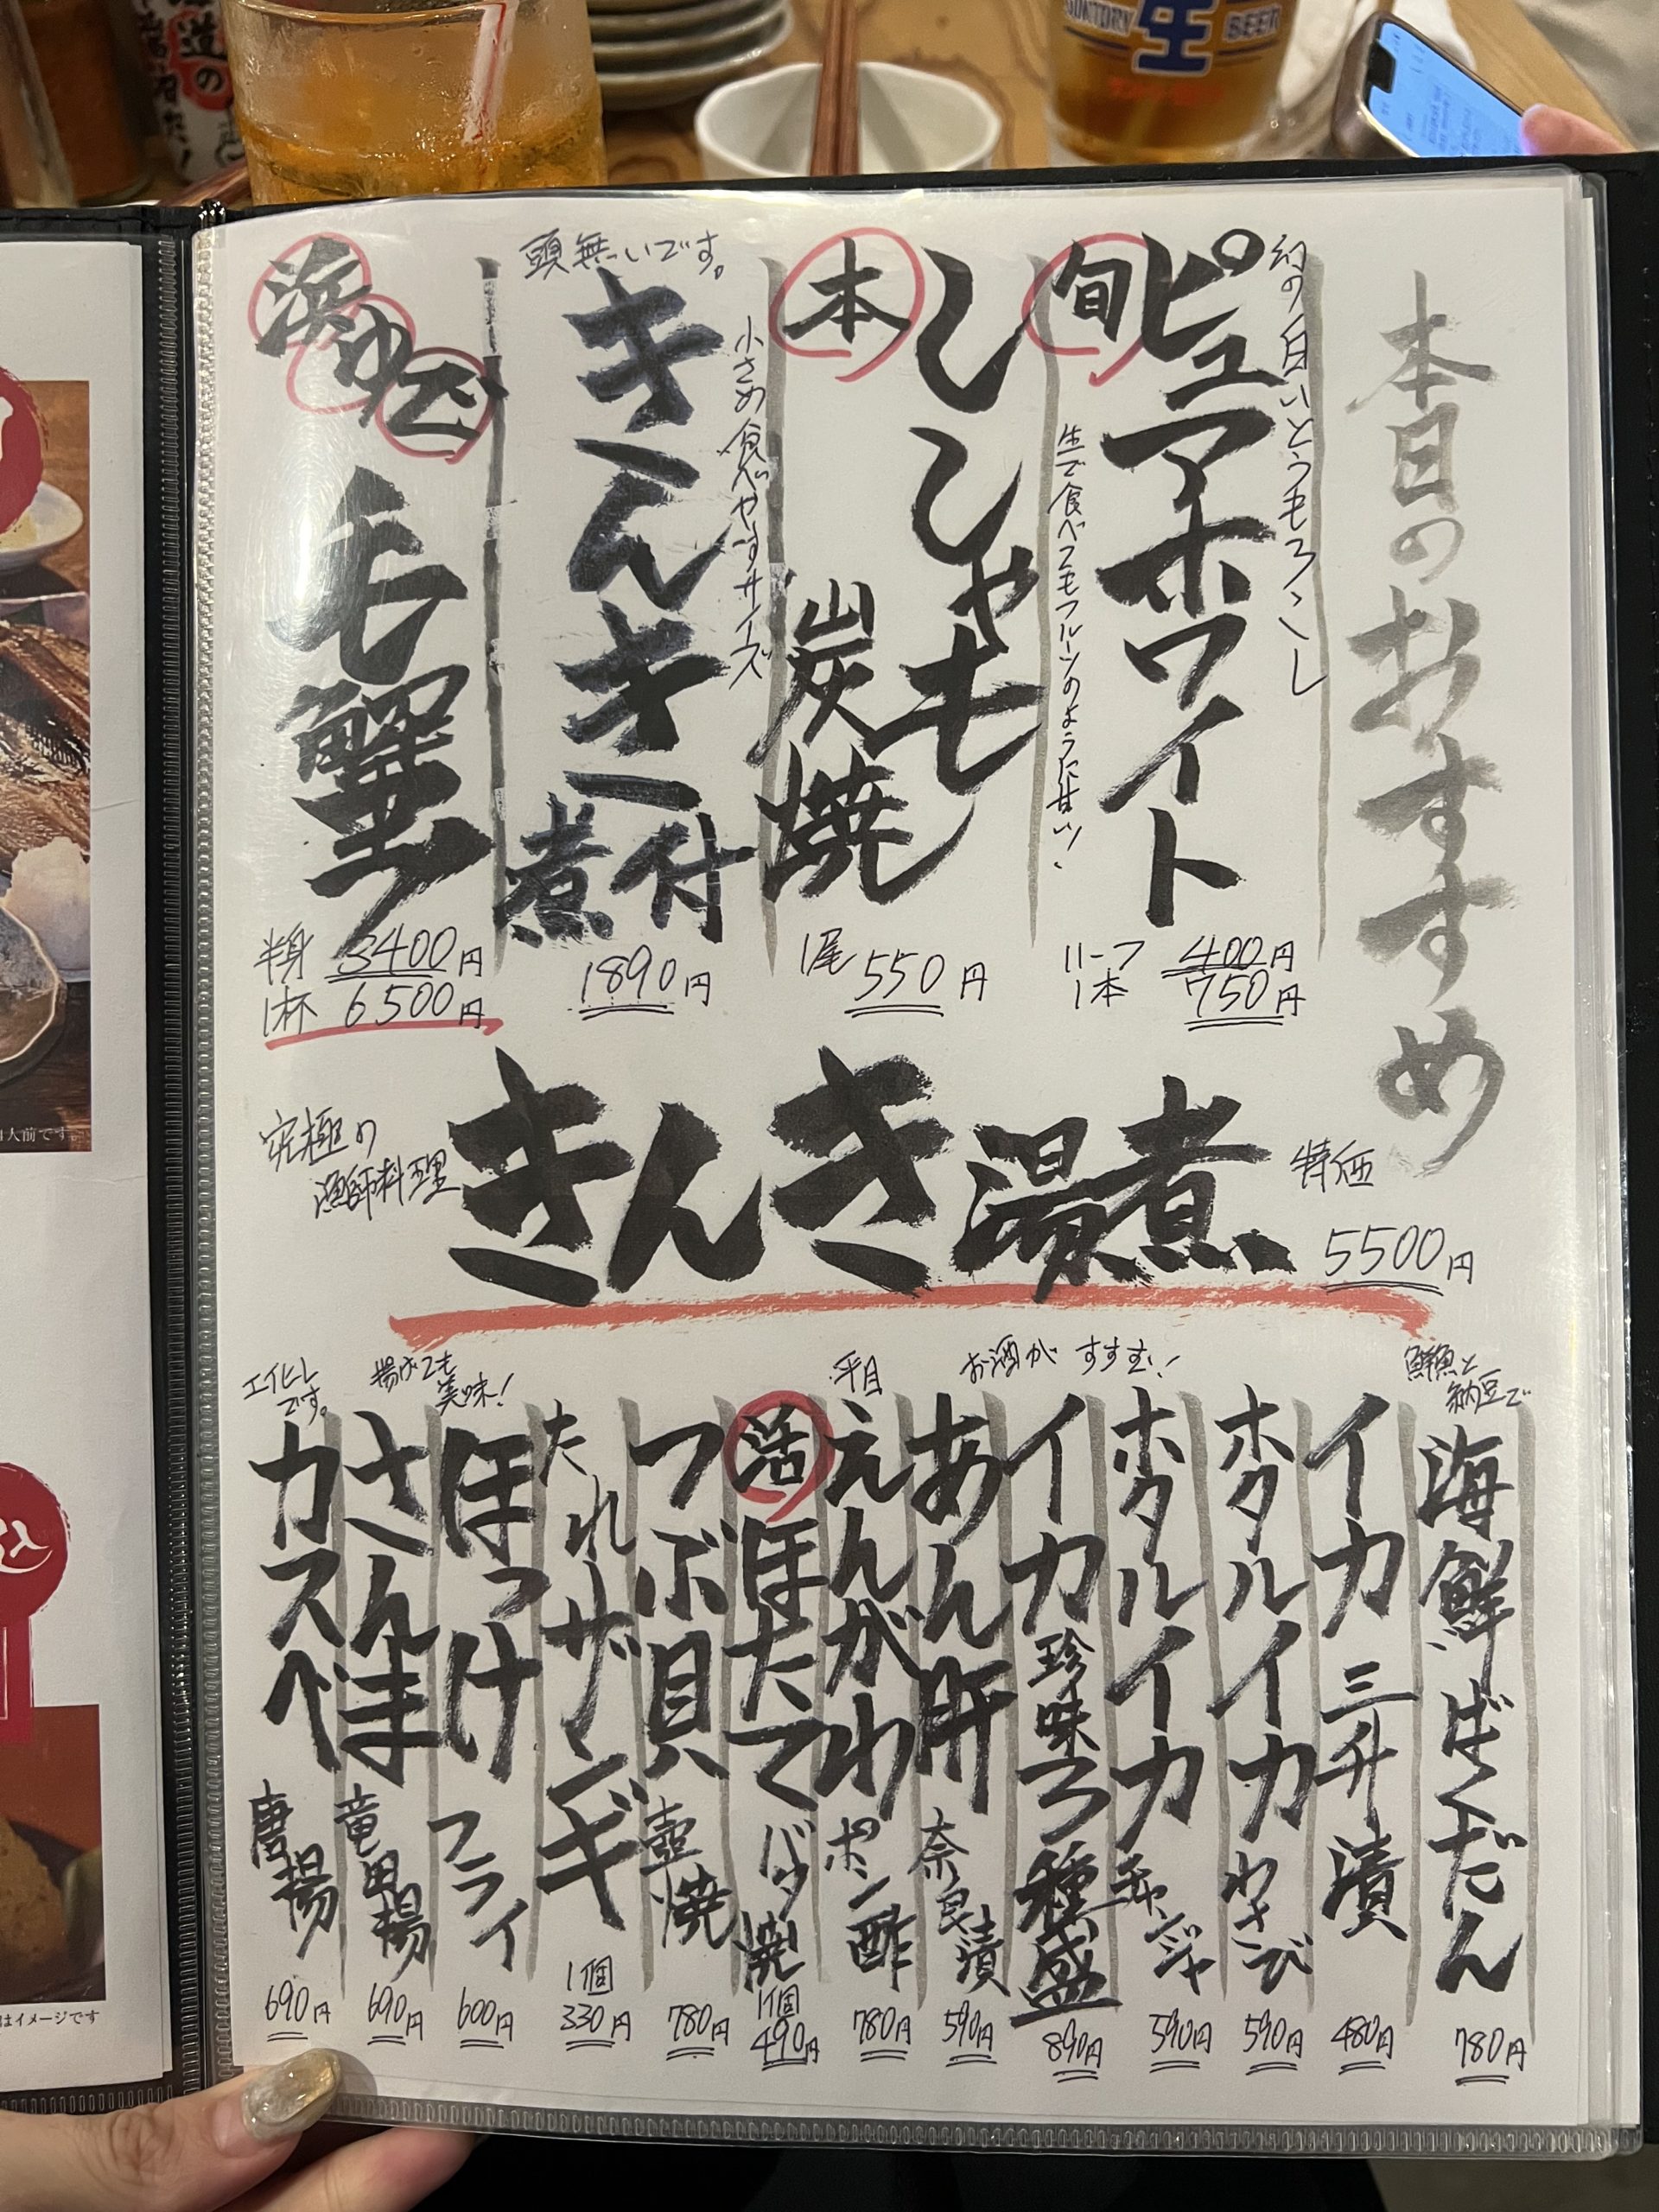 本日のおすすめ
幻の白いとうもろこし
旬 ピュアホワイト
生で食べてもフルーツのように甘い!
ハーフ 400円
1本 750円
本 ししゃも
炭焼
1尾 550円
小さめ食べやすサイズ
きんきー煮付
頭無いです。
1890円
浜ゆで
毛蟹
半身 3400円
1杯 6500円
究極の
漁師料理
きんき湯煮
特価
5500円
鮮魚と
納豆で
海鮮ばくだん
780円
イカ三升漬
480円
ホタルイカわさび
590円
ホタルイカチャンジャ
590円
お酒がすすむ!
イカ珍味3種盛
890円
あん肝奈良漬
590円
平目
えんがわポン酢
780円
活 ほたてバター焼
1個
490円
つぶ貝壺焼
780円
たれザンギ
1個
330円
ほっけフライ
600円
揚げても
美味!
さんま竜田揚
690円
エイヒレ
です。
カスべ唐揚
690円
SUNTORY 生 BEER
道の
1人前です。
はイメージです